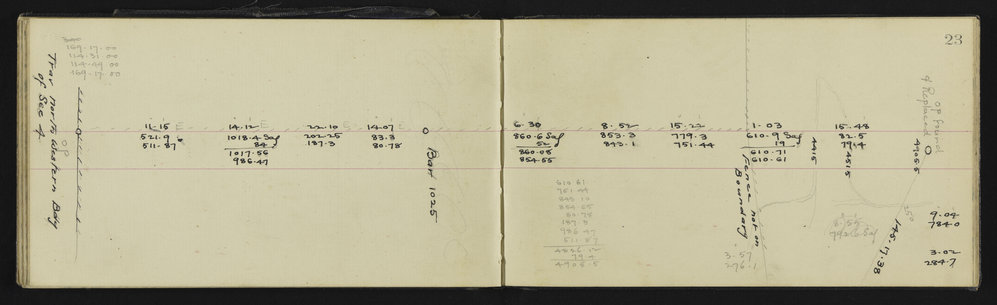 23
169·17·00
114·31·00
114·49·00
169·17·00
Trav North Western Bdy
of Sec 4
OP
11·15
521·9
511·87
14·12
1018·4 Saf
84
1017·56
986·47
22·10
202·25
187·3
14·07
83·3
80·78
Bar 1025
6·30
860·6 Saf
52
860·08
854·55
8·52
853·3
843·1
15·22
779·3
751·44
1·03
610·9 Saf
19
610·71
610·61
Fence not on
Boundary
4415
15·48
82·5
79·4
4515
OP found
& Replaced
49055
610·61
751·44
843·10
854·55
80·78
187·3
986·47
511·87
4826·12
79·4
4905·5
8·55
792·6 Saf
3·57
276·1
250
145·17·38
9·04
784·0
3·02
284·7